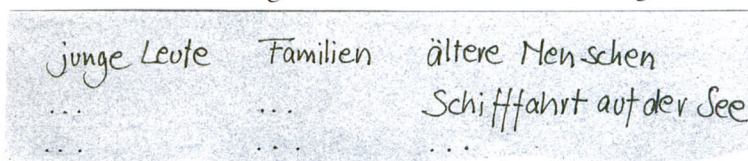 junge Leute Familien ältere Menschen
... ... Schifffahrt auf der See
... ... ...